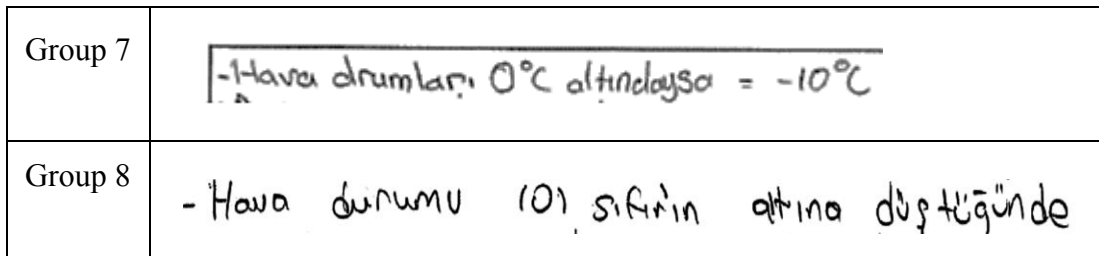 Group 7
-Hava drumları 0°C altındaysa = -10°C
Group 8
- Hava durumu (0) sıfırın altına düştüğünde